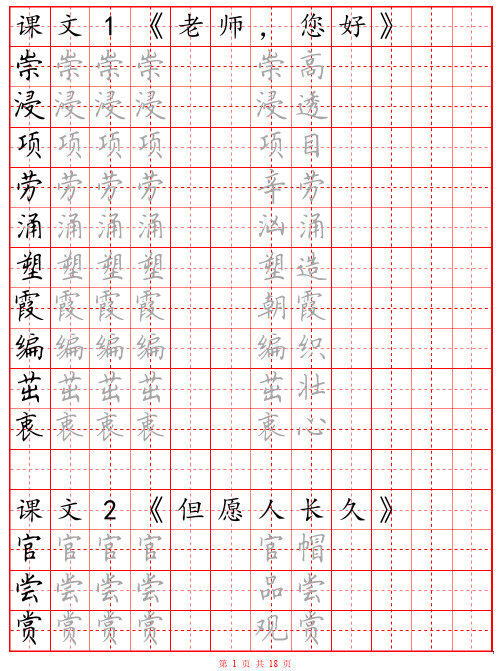 课文1《老师，您好》
崇崇崇崇 崇高
浸浸浸浸 浸透
项项项项 项目
劳劳劳劳 辛劳
涌涌涌涌 汹涌
塑塑塑塑 塑造
霞霞霞霞 朝霞
编编编编 编织
茁茁茁茁 茁壮
衷衷衷衷 衷心
课文2《但愿人长久》
官官官官 官帽
尝尝尝尝 品尝
赏赏赏赏 观赏
第 1 页 共 18 页